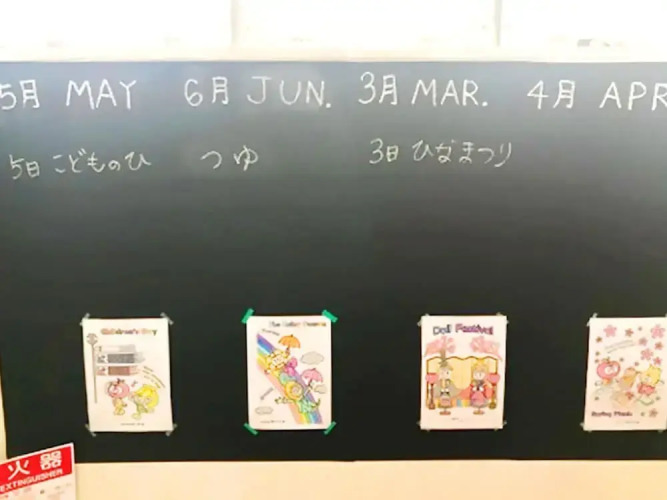 5月 MAY
6月 JUN.
3月 MAR.
4月 APR
5日 こどものひ
つゆ
3日 ひなまつり
Children's Day
The Rainy Season
Doll Festival
Spring Picnic
火 器
EXTINGUISHER